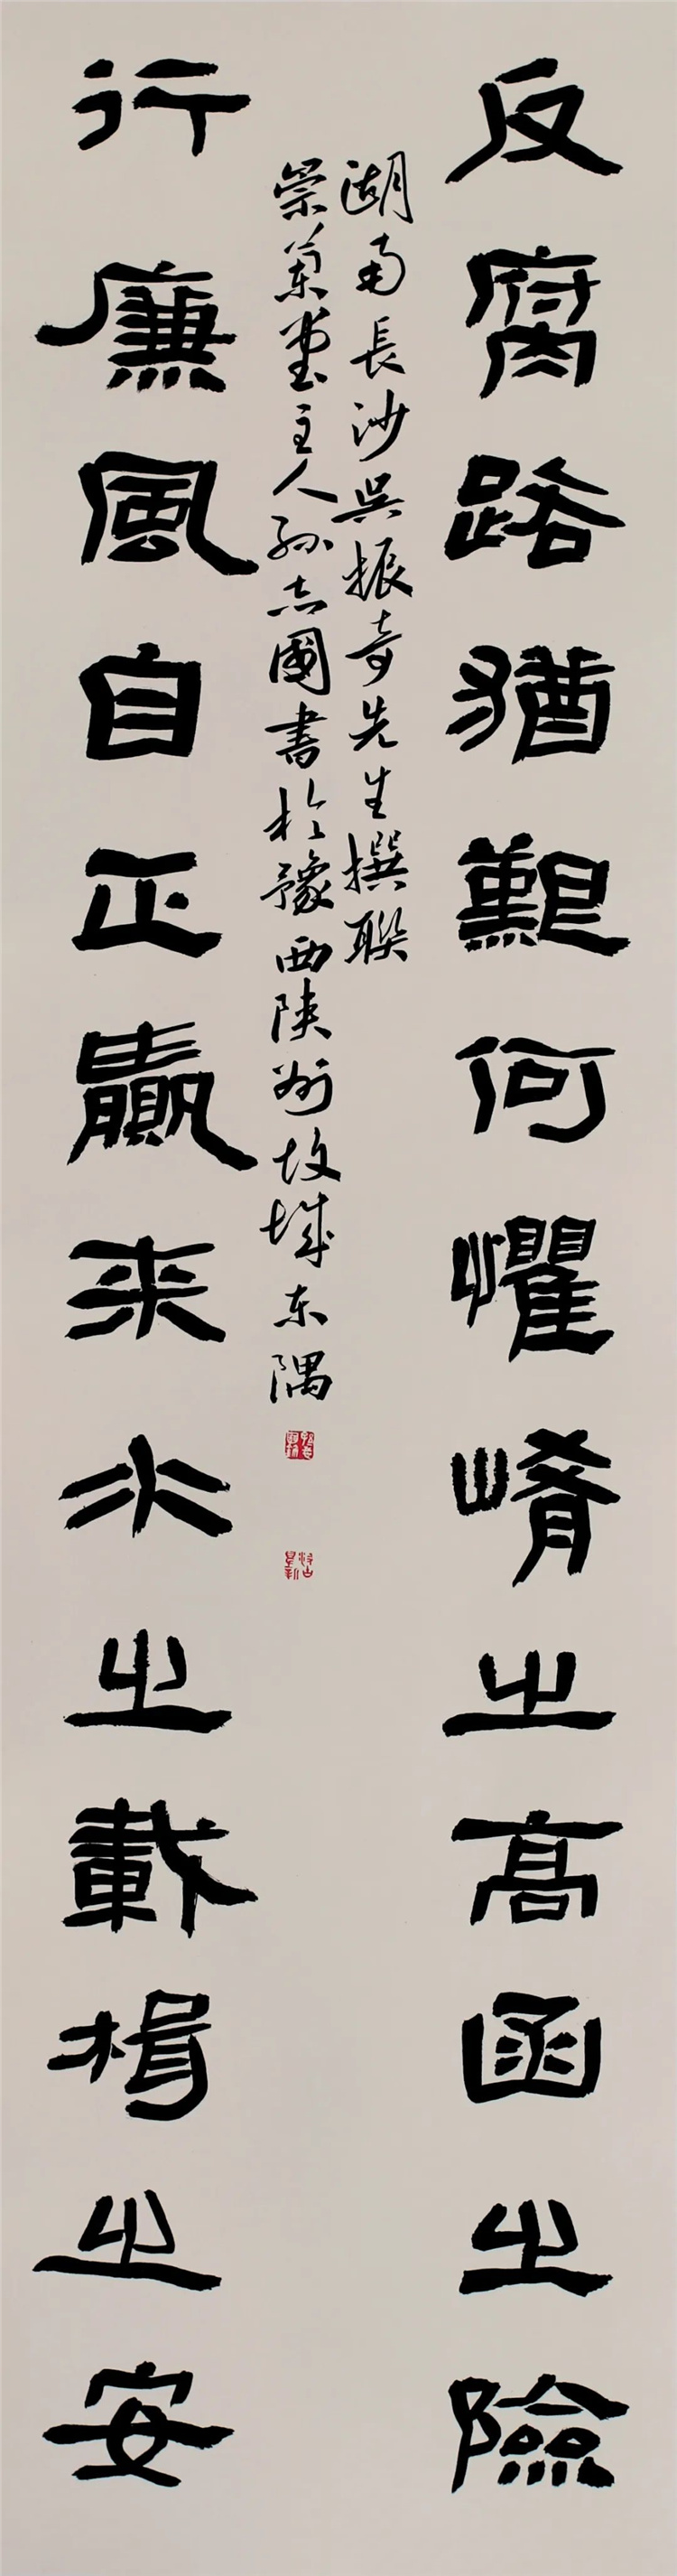 反腐路猶艱何懼崤之高函之險
行廉風自正贏来水之載楫之安
湖南長沙吳振奇先生撰聯
崇蘭堂主人孫志國書於豫西陝州故城东隅